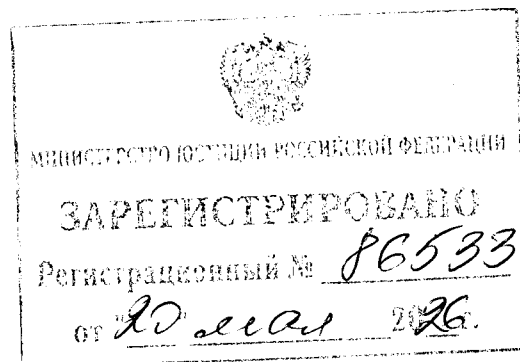 МИНИСТЕРСТВО ЮСТИЦИИ РОССИЙСКОЙ ФЕДЕРАЦИИ
ЗАРЕГИСТРИРОВАНО
Регистрационный № 86533
от "20" мая 2026г.